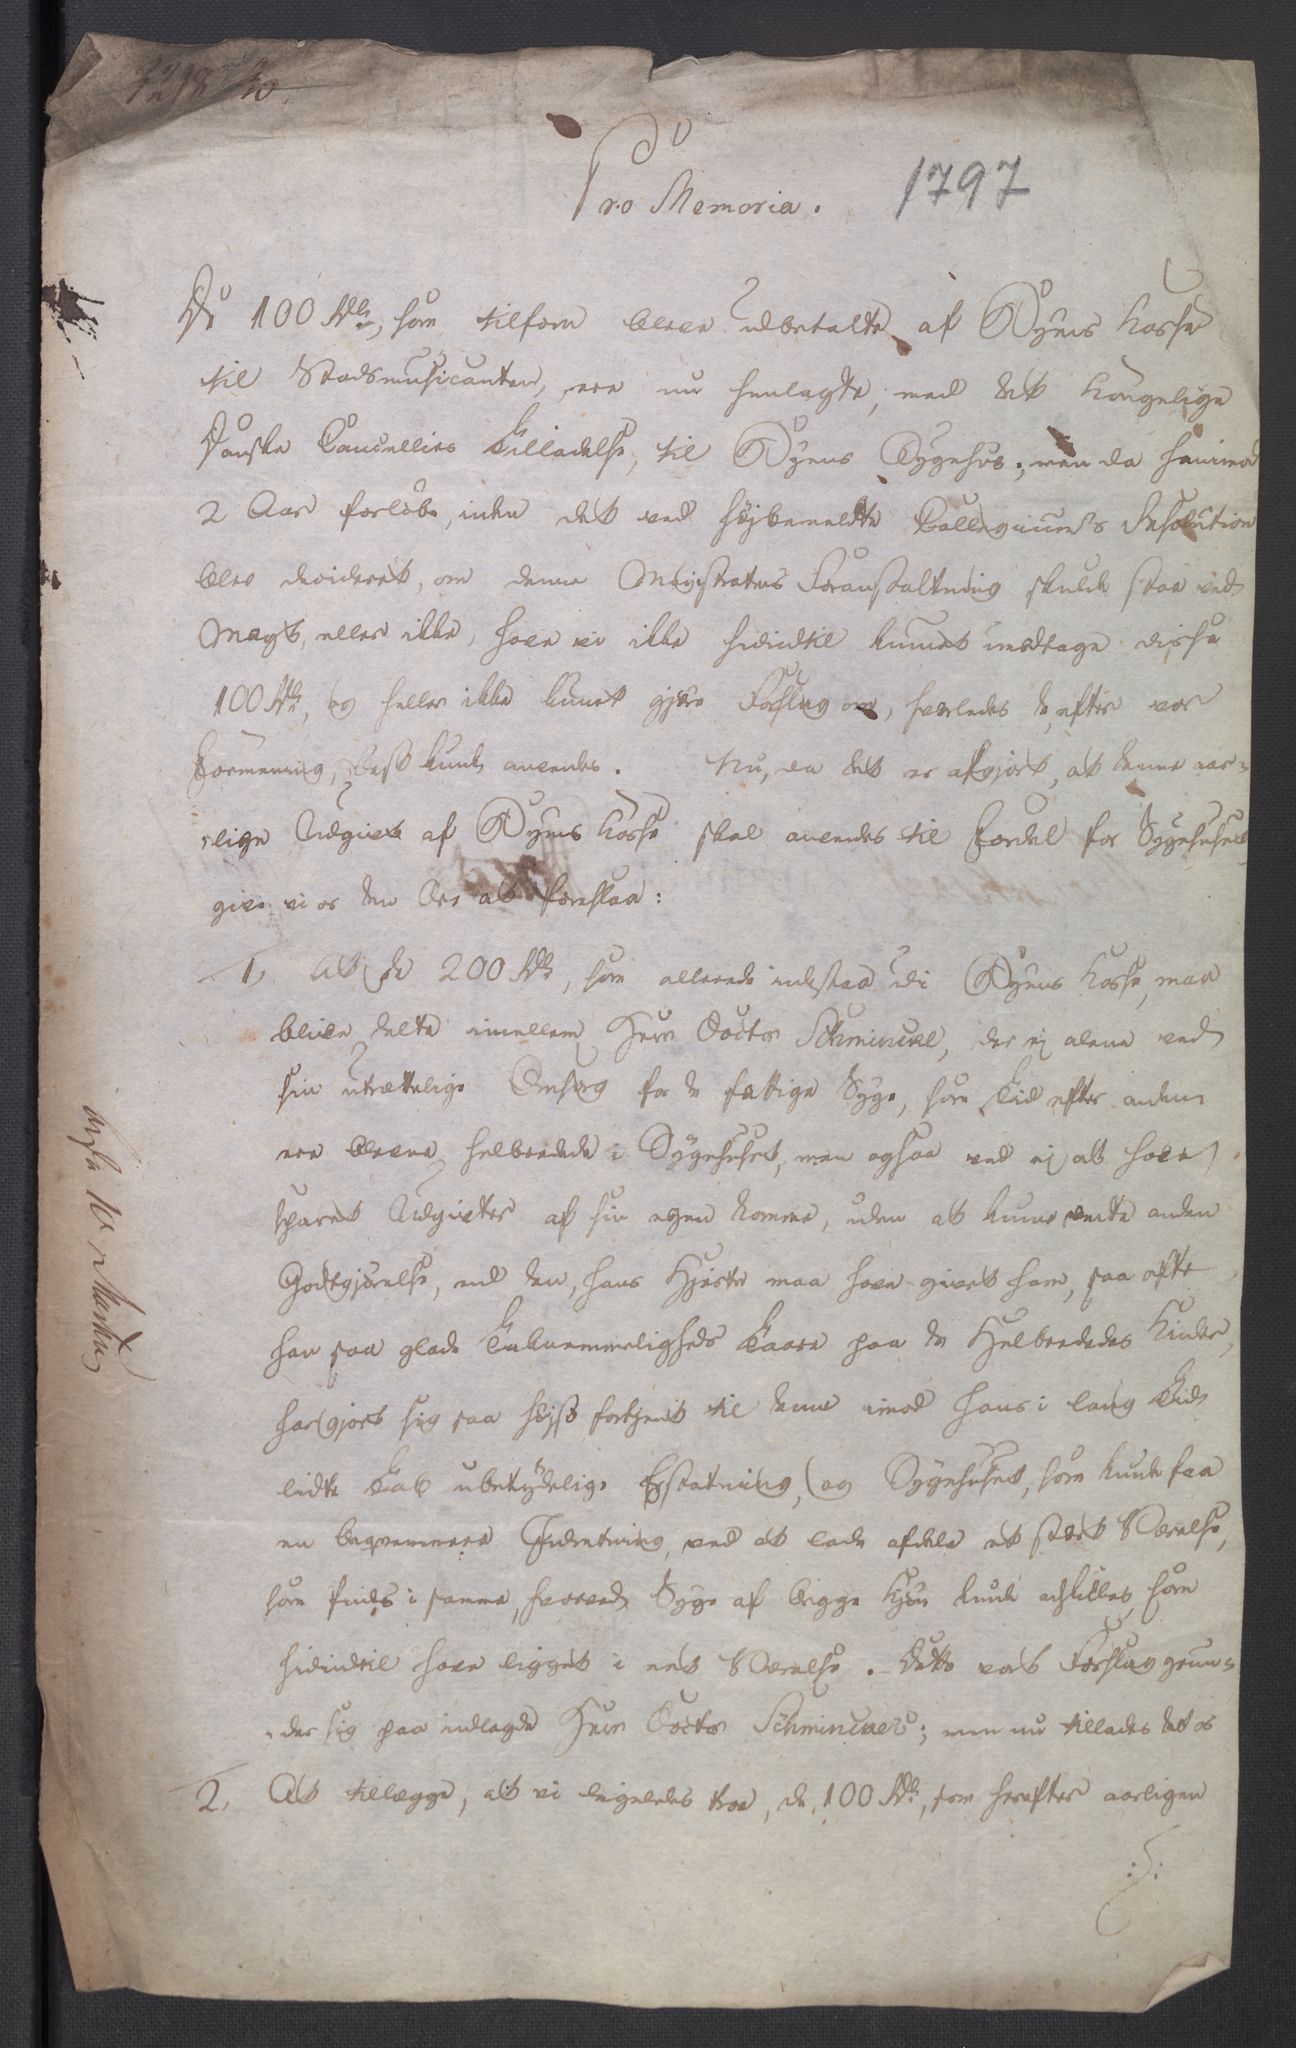 Pro Memoria. 1797
De 100 Rdlr, som tilforn bleve udbetalte af Byens Kasse
til Stadsmusicanten, ere nu henlagte, med det Kongelige
Danske Cancellies Tilladelse, til Byens Sygehus; men da henimod
2 Aar forløbe, inden det ved højbemeldte Collegiums Resolution
blev decideret, om denne Magistratens Foranstaltning skulde staae ved
Magt, eller ikke, have vi ikke hidindtil kunnet modtage disse
100 Rdl, og heller ikke kunet gjøre Forslag om, hvorledes de efter vor
Formening, best kunde anvendes. Nu, da det er afgjort, at denne aar-
-lige Udgivt af Byens Kasse skal anvendes til Fordel for Sygehuset,
give vi os den Ære at foreslaa:
1, At de 200 Rdl, som allerede indestaae udi Byens Kasse, maa
blive delte imellem Herr Doctor Schminckel, der ej alene ved
sin utrættelige Omsorg for de fattige Syge, som Tid efter anden
ere blevne helbredede i Sygehuset, men ogsaa ved ej at have
sparet Udgivter af sin egen Lomme, uden at kune vente anden
Godtgjørelse, end den, hans Hjerte maa have givet ham, saa ofte
han saae glade Taknemmeligheds Taare paa de Helbrededes Kinder,
har gjort sig saa højst fortjent til denne imod hans i lang Tid
lidte Tab ubetydelige Erstatning, og Sygehuset, som kunde faae
en beqvemmere Indretning, ved at lade afdele et stort Værelse,
som findes i samme, hvorved Syge af begge Kjøn kunde adskilles, som
hidindtil have ligget i eet Værelse. Dette vort Forslag grun-
-der sig paa indlagde Herr Doctor Schminckels; men nu tillades det os
2, At tillægge, at vi ligeledes troe, de 100 Rdl, som herefter aarligen